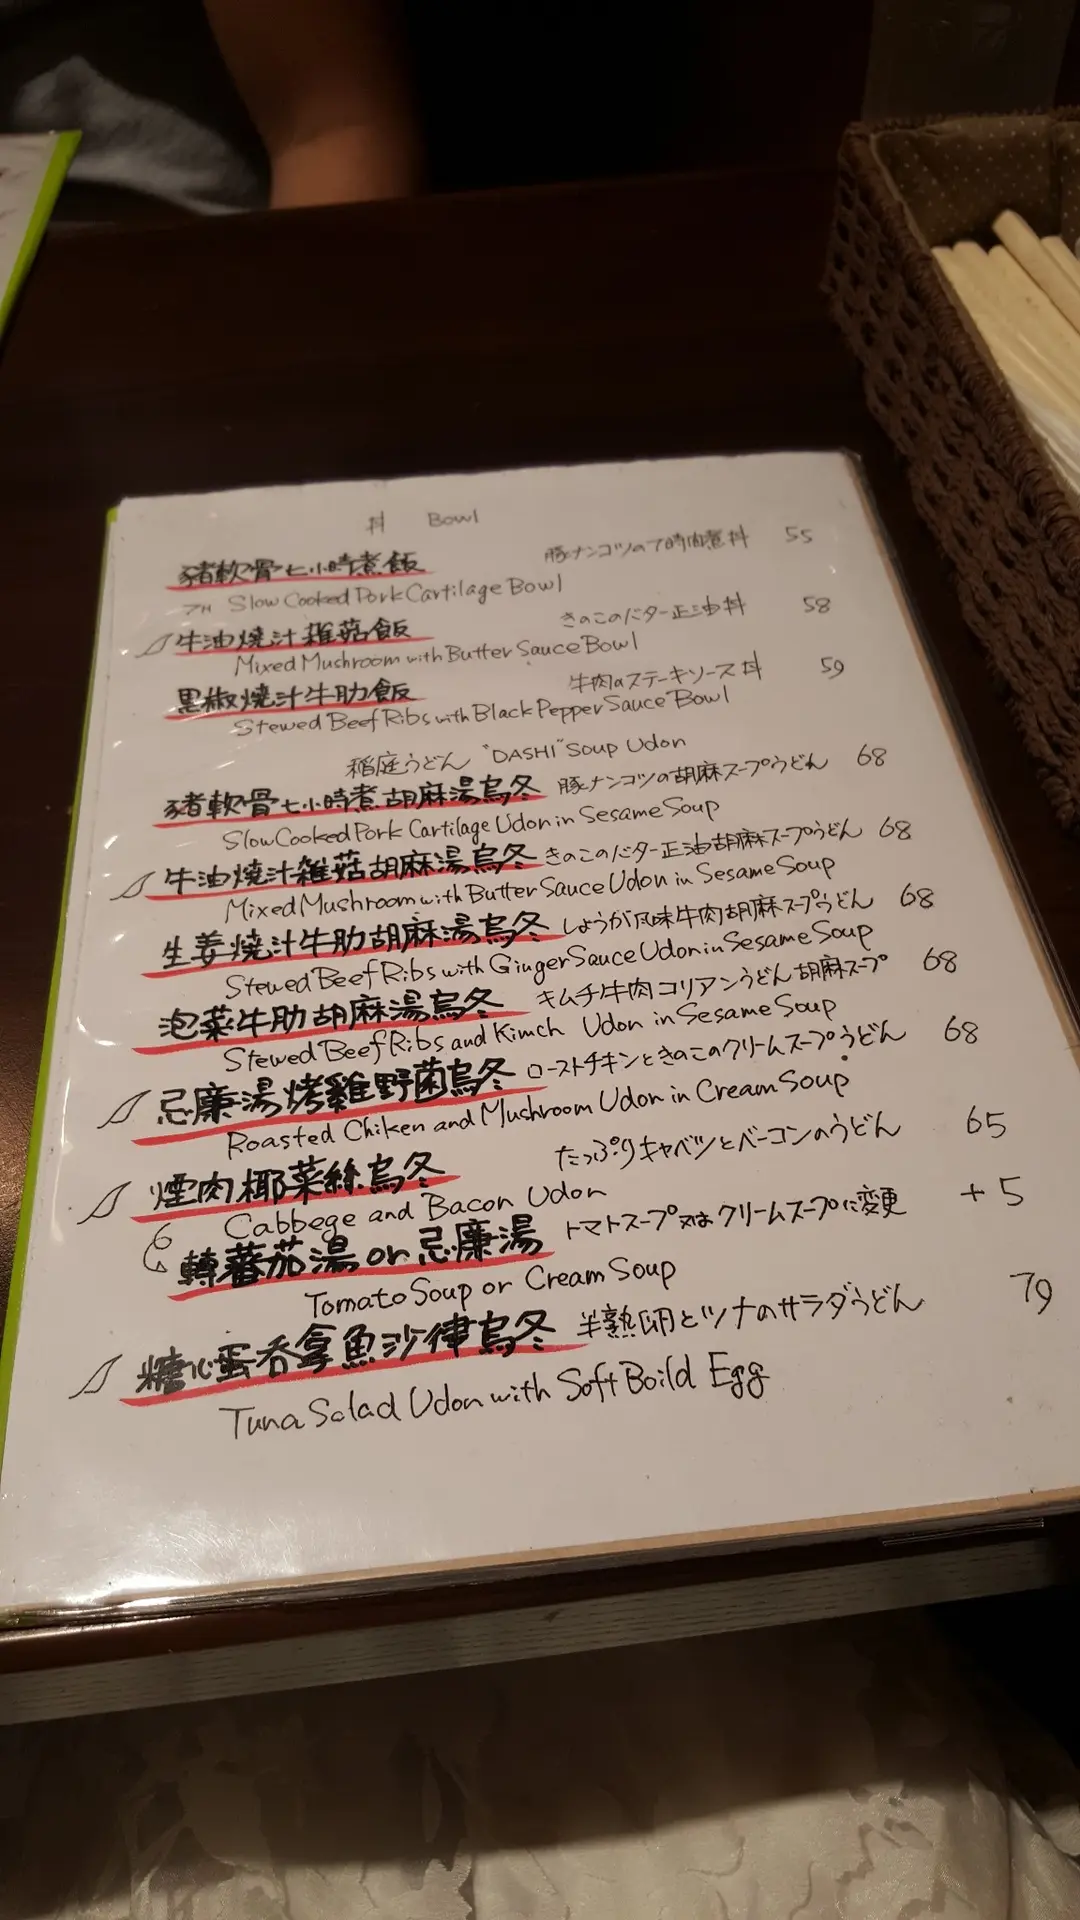 丼 Bowl
豬軟骨七小時煮飯 豚ナンコツの7時間煮丼 55
7H Slow Cooked Pork Cartilage Bowl
牛油燒汁雜菇飯 きのこのバター正油丼 58
Mixed Mushroom with Butter Sauce Bowl
黑椒燒汁牛肋飯 牛肉のステーキソース丼 59
Stewed Beef Ribs with Black Pepper Sauce Bowl
稲庭うどん "DASHI" Soup Udon
豬軟骨七小時煮胡麻湯烏冬 豚ナンコツの胡麻スープうどん 68
Slow Cooked Pork Cartilage Udon in Sesame Soup
牛油燒汁雜菇胡麻湯烏冬 きのこのバター正油胡麻スープうどん 68
Mixed Mushroom with Butter Sauce Udon in Sesame Soup
生姜燒汁牛肋胡麻湯烏冬 しょうが風味牛肉胡麻スープうどん 68
Stewed Beef Ribs with Ginger Sauce Udon in Sesame Soup
泡菜牛肋胡麻湯烏冬 キムチ牛肉コリアンうどん胡麻スープ 68
Stewed Beef Ribs and Kimch Udon in Sesame Soup
忌廉湯烤雞野菌烏冬 ローストチキンときのこのクリームスープうどん 68
Roasted Chiken and Mushroom Udon in Cream Soup
煙肉椰菜絲烏冬 たっぷりキャベツとベーコンのうどん 65
Cabbege and Bacon Udon
轉蕃茄湯 or 忌廉湯 トマトスープ又はクリームスープに変更 +5
Tomato Soup or Cream Soup
糖心蛋吞拿魚沙律烏冬 半熟卵とツナのサラダうどん 79
Tuna Salad Udon with Soft Boild Egg